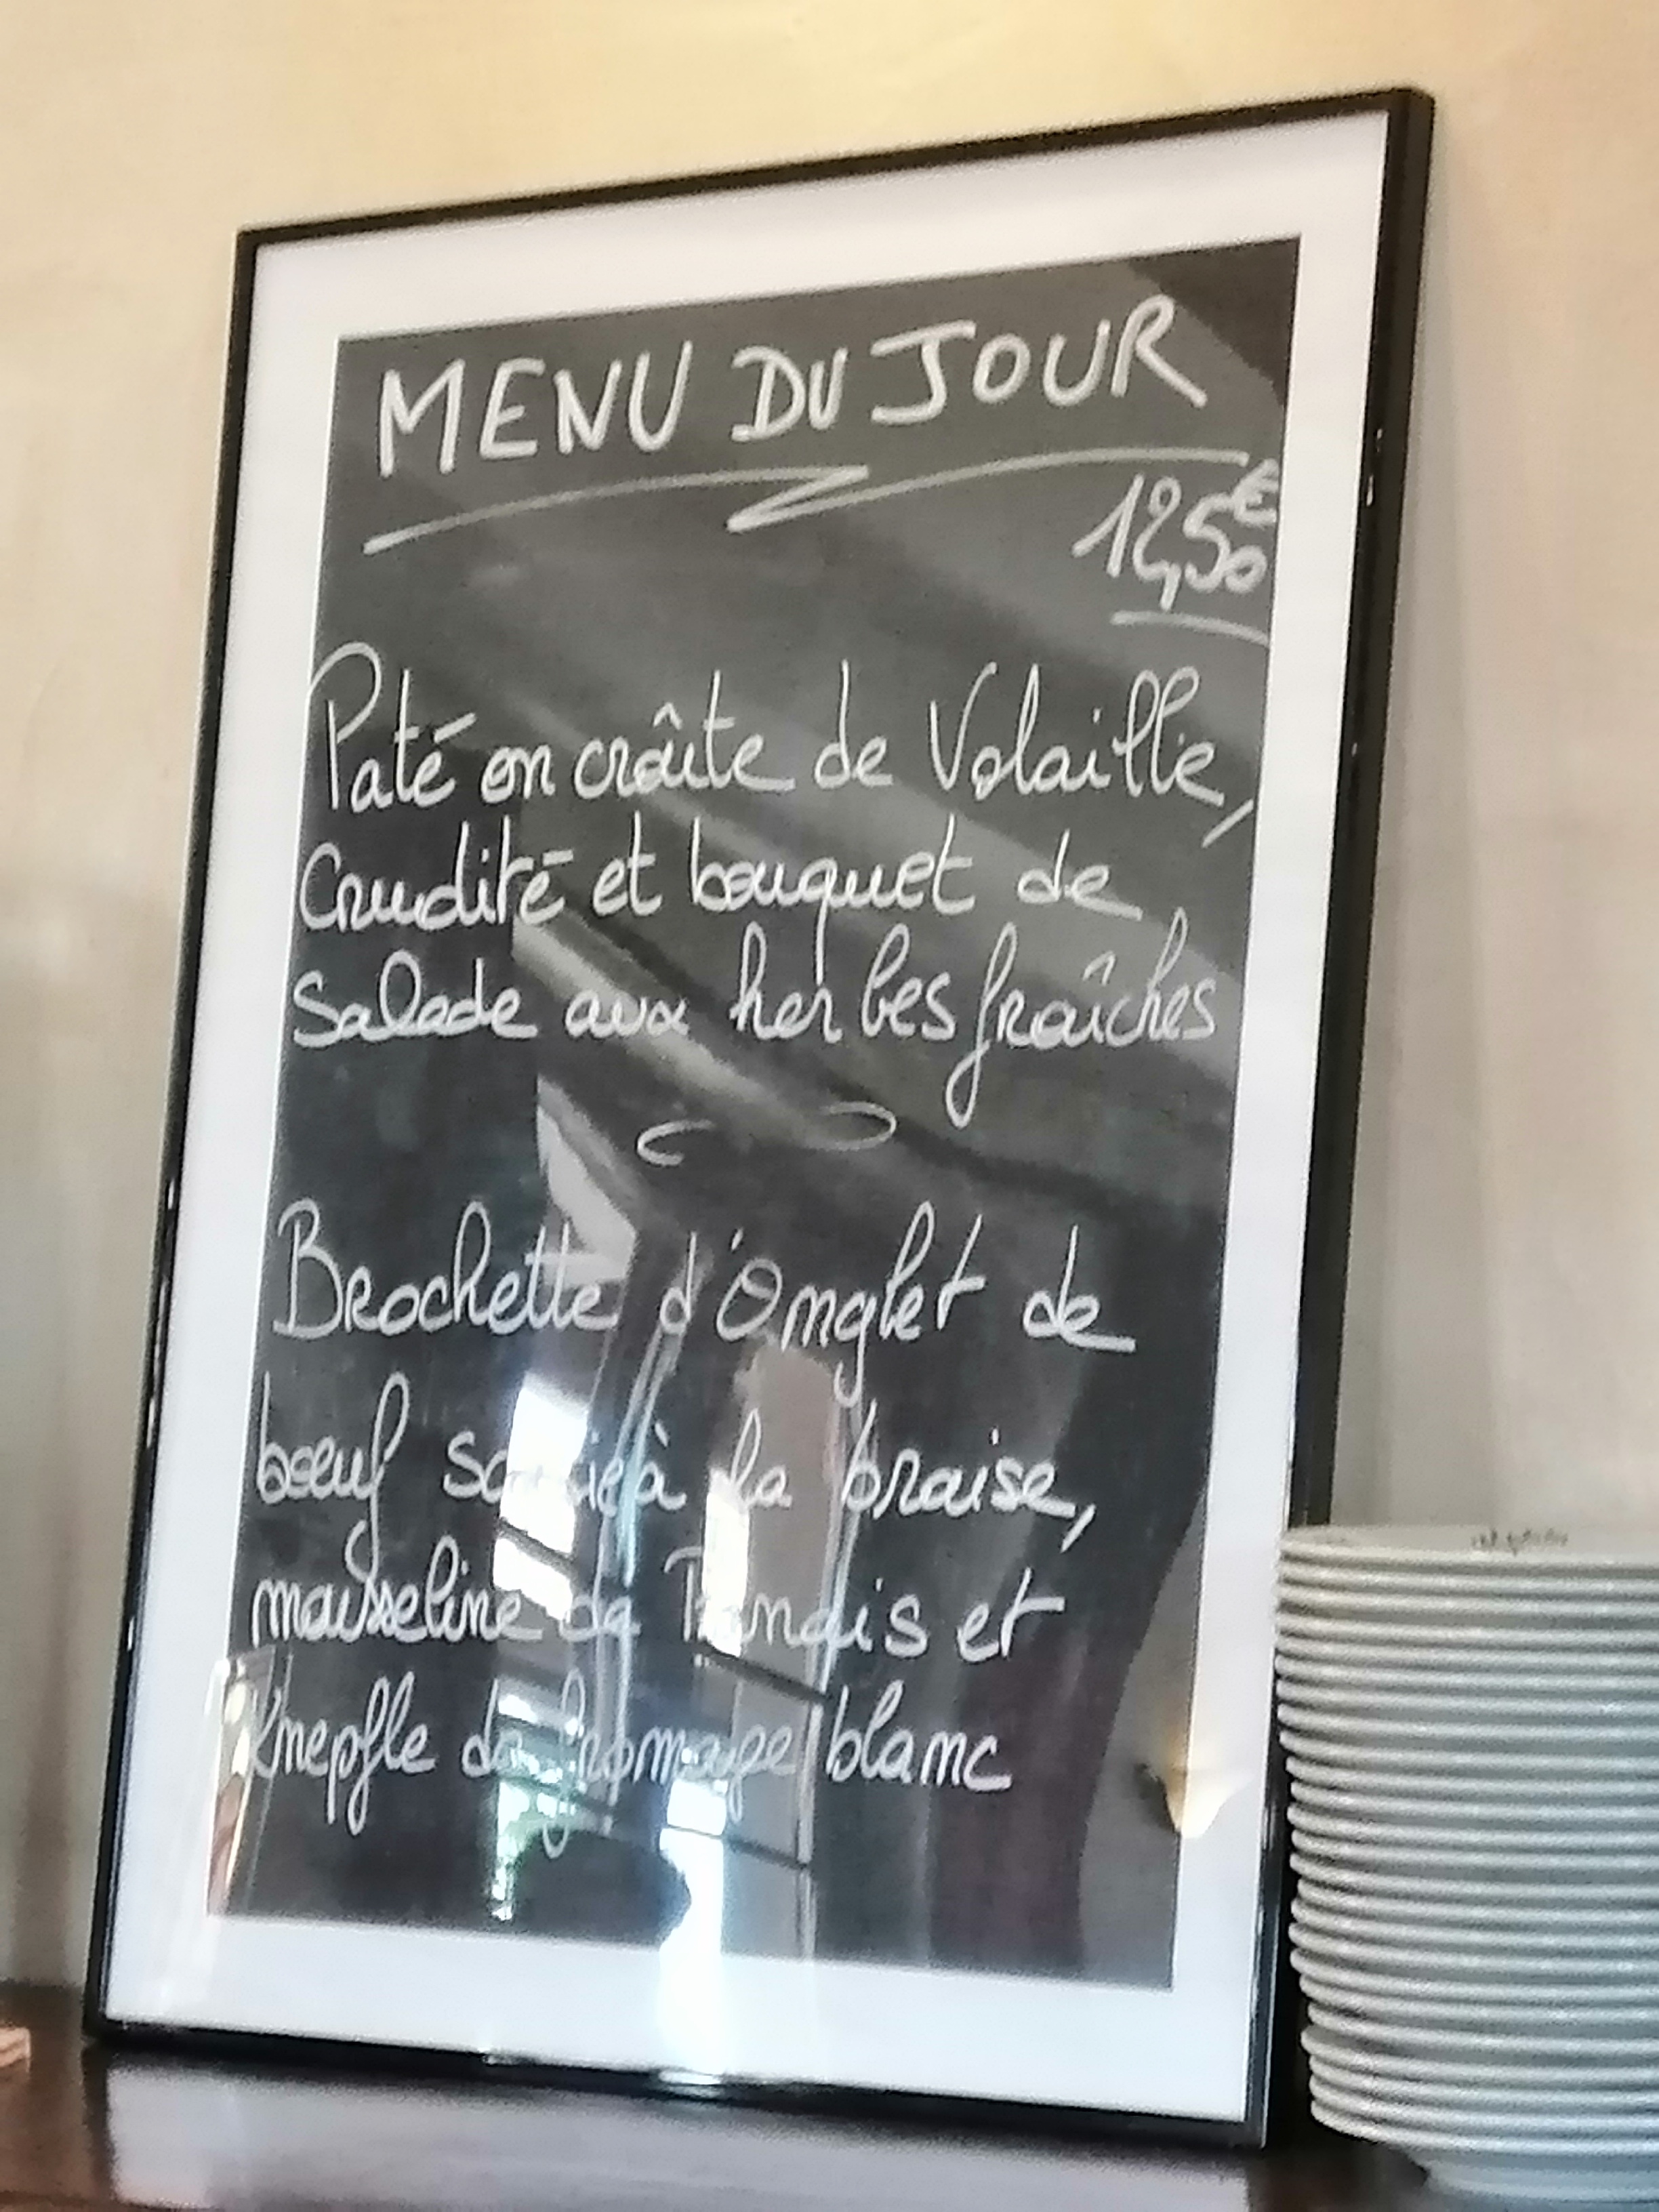 MENU DU JOUR
12,50€
Paté en croûte de Volaille,
Crudité et bouquet de
Salade aux herbes fraîches
Brochette d'Onglet de
bœuf à la braise,
mousseline de Panais et
Knepfle de fromage blanc